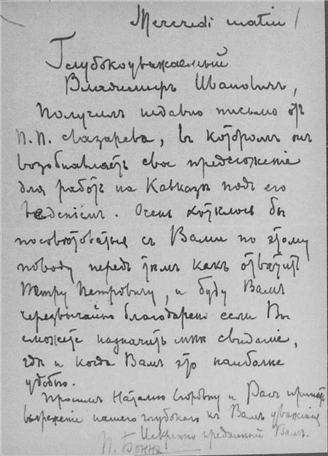 Mercredi matin
Глубокоуважаемый
Владимиръ Ивановичъ,
Получилъ недавно письмо отъ
П. П. Лазарева, въ которомъ онъ
возобнавляетъ свое предложеніе
для работъ на Кавказѣ подъ его
веденіемъ. Очень хотѣлось бы
посовѣтоваться съ Вами по этому
поводу передъ тѣмъ какъ отвѣтить
Петру Петровичу, и буду Вамъ
чрезвычайно благодаренъ если Вы
сможете назначить мнѣ свиданіе,
гдѣ и когда Вамъ это наиболѣе
удобно.
Просимъ Наталію Егоровну и Васъ принять
выраженіе нашего глубокаго къ Вамъ уваженія
Искренно преданный Вамъ.